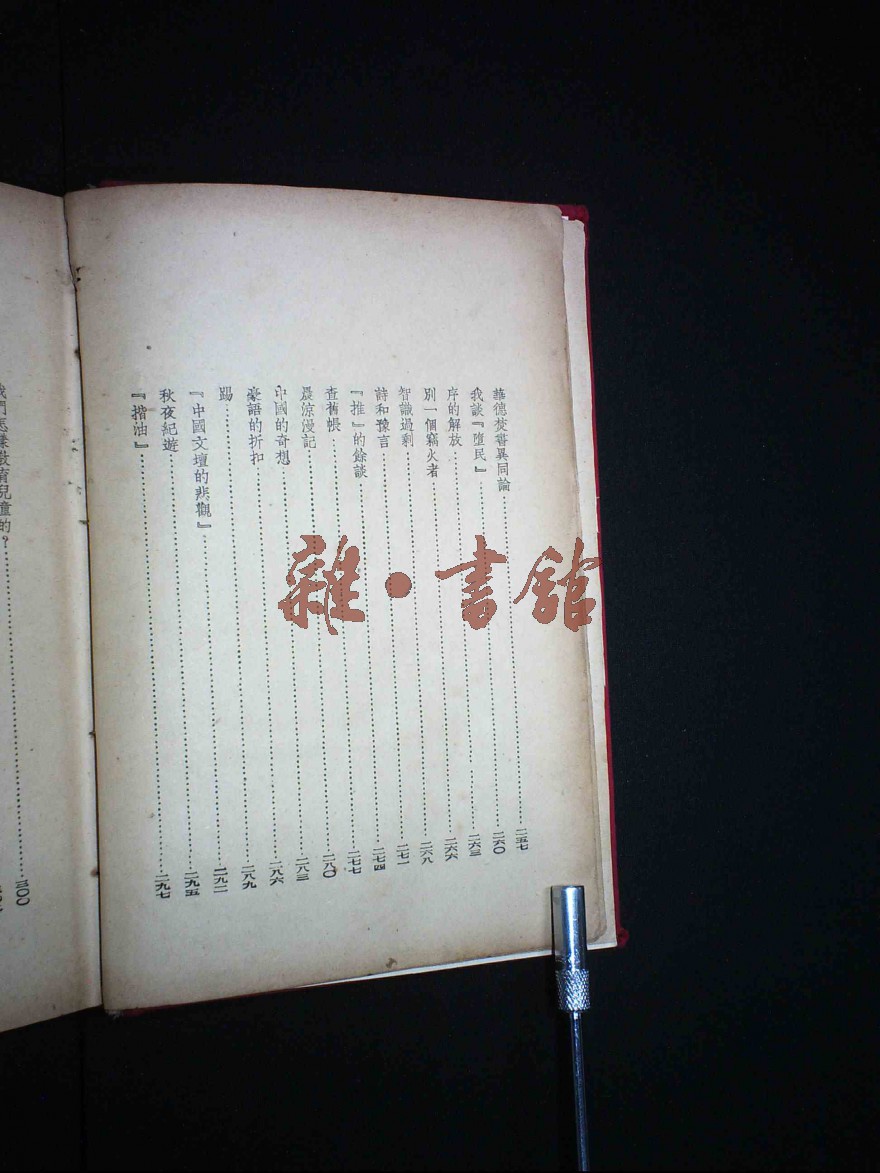 華德焚書異同論……二五七
我談『墮民』……二六〇
序的解放……二六三
別一個竊火者……二六六
智識過剩……二六八
詩和豫言……二七一
『推』的餘談……二七四
查舊帳……二七七
晨涼漫記……二八〇
中國的奇想……二八三
豪語的折扣……二八六
踢……二八九
『中國文壇的悲觀』……二九二
秋夜紀遊……二九五
『揩油』……二九七
我們怎樣教育兒童的？……三〇〇
雜·書館